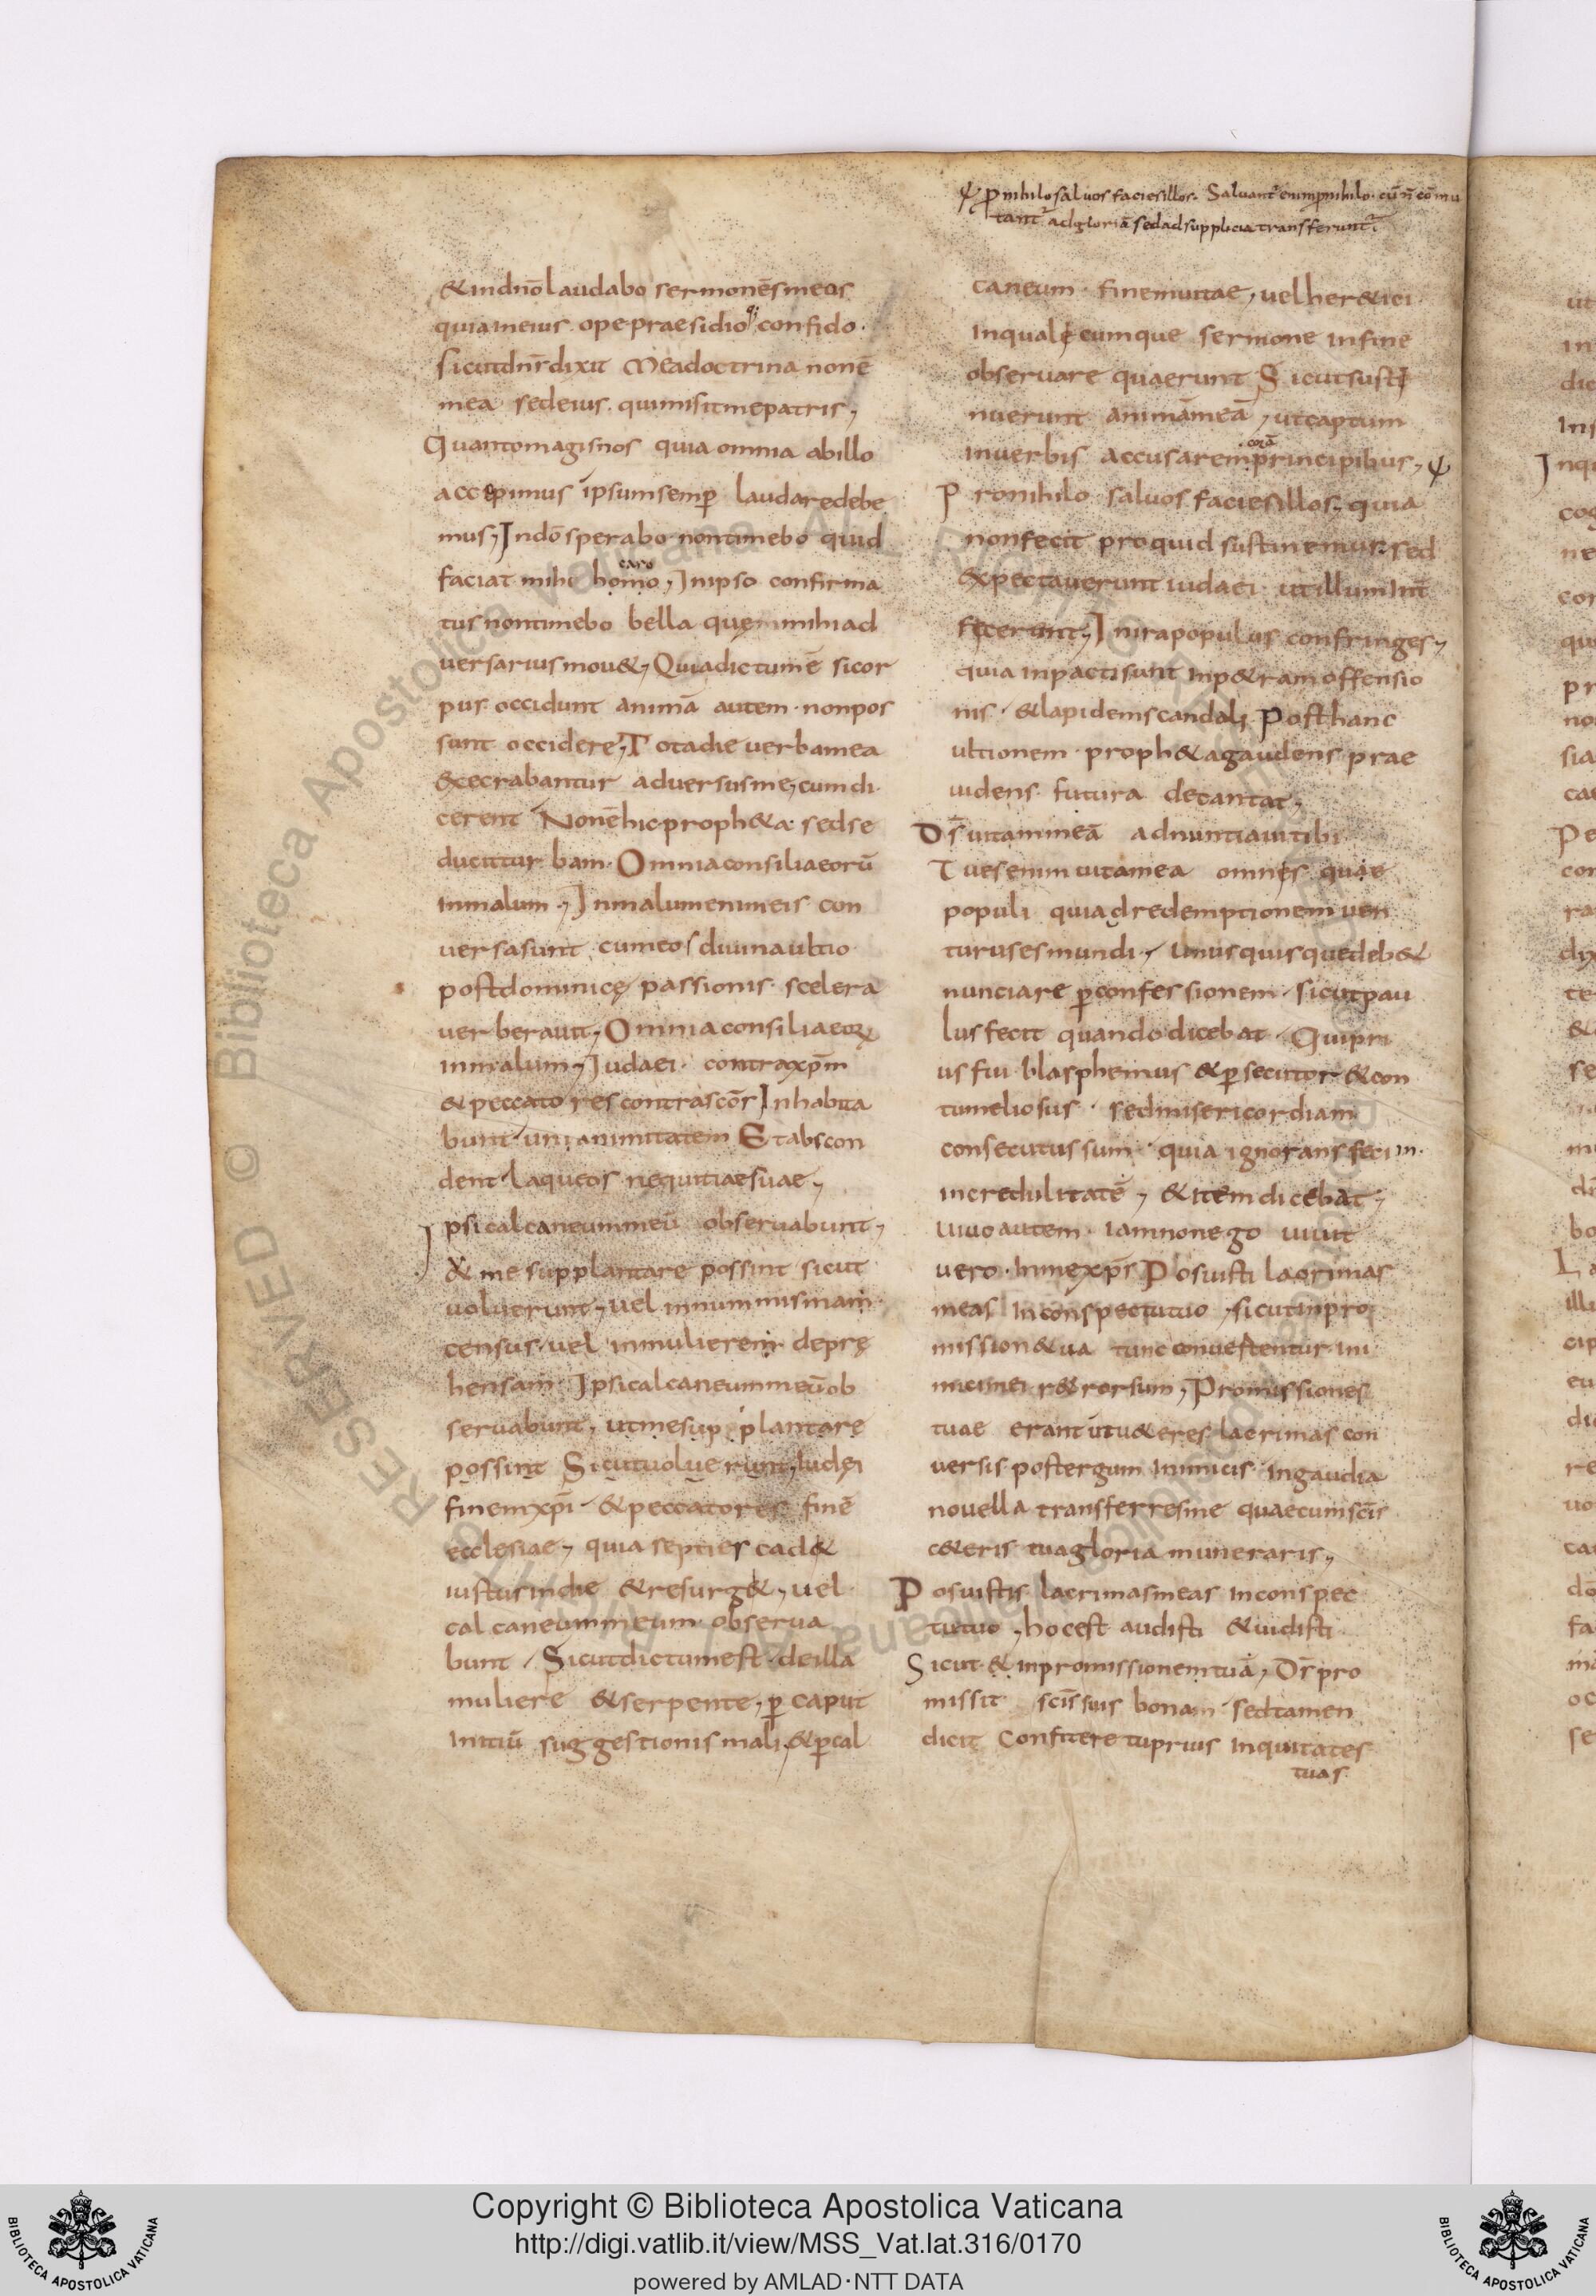 ꝓnihilo saluos facies illos. Saluant᷑ enim ꝓnihilo. cū n̄ cōmu
tant᷑ adgloriā sed adsupplicia transferunt᷑
&indnōlaudabo sermonēs meos
quiaineius ope praesidio q; confido.
sicutdn̄r dixit Mea doctrina nonē
mea sedeius quimisit me patris,
Quantomagis nos quia omnia abillo
accepimus ipsum semꝑ laudaredebe
mus, Indō sperabo nontimebo quid
faciat mihi homo caro, Inipso confirma
tus nontimebo bella quę inimihi ad
uersarius mou&, Quiadictumē sicor
pus occidunt animā autem nonpos
sunt occidere, Totadie uerbamea
execrabantur aduersus me, cum di
cerent Nonēhic proph&a sed se
ducit turbam. Omnia consilia eorū
inmalum, Inmalum enim eis con
uersa sunt cum eos diuina ultio
postdominicę passionis scelera
uerberauit, Omnia consilia eoꝝ
inmalum, Iudaei contra xp̄m
& peccatores contra sc̄os Inhabita
bunt unianimitatem Et abscon
dent laqueos nequitiae suae,
Ipsi calcaneummeū obseruabunt,
& me supplantare possint sicut
uoluerunt, uel innummismam
census, uel inmulierem deprę
hensam Ipsi calcaneum meū ob
seruabunt, utme supplantare
possint Sicutuoluerunt, iudęi
finem xp̄i & peccatores finē
ecclesiae, quia septies cad&
iustus indie & resurg&, uel
calcaneummeum obserua
bunt, Sicutdictumest deilla
muliere & serpente, ꝑ caput
initiū suggestionis mali, &ꝑcal
caneum finemuitae, uel her&ici
inqualęcumque sermone infine
obseruare quaerunt Sicutsusti
nuerunt animāmeā, utcaptum
inuerbis accusarem corā principibus,
Pronihilo saluos faciesillos, quia
nonfecit proquid sustinemus, sed
expectauerunt iudaei utillum int̄
fecerunt, Inira populos confringes,
quia inpacti sunt inp&ram offensio
nis &lapidem scandali Posthanc
ultionem proph&a gaudens prae
uidens futura decantat,
Ds̄ uitammeā adnuntiauitibi
Tues enim uitamea omnes quae
populi quia adredemptionem uen
turus es mundi, Unusquisque deb&
nunciare ꝑconfessionem sicutpau
lusfecit quando dicebat. Qui pri
us fui blasphemus &ꝑsecutor &con
tumeliosus sed misericordiam
consecutus sum quia ignorans feci in
incredulitatē, &item dicebat,
uiuo autem iam nonego uiuit
uero inme xp̄s Posuisti lacrimas
meas Inconspectutuo, sicutinpro
mission&ua tunc conuertentur ini
micimei r&rorsum, Promissiones
tuae erant utu&eres lacrimas con
uersis postergum inimicis ingaudia
nouella transferresme quaecumsc̄is
c&eris tuagloria muneraris,
Posuistis lacrimas meas inconspec
tutuo, hocest audisti &uidisti
Sicut & inpromissionem tuā, Ds̄ pro
missit sc̄is suis bonam sed tamen
dicit Confitere tuprius iniquitates
tuas
Copyright © Biblioteca Apostolica Vaticana
http://digi.vatlib.it/view/MSS_Vat.lat.316/0170
powered by AMLAD·NTT DATA